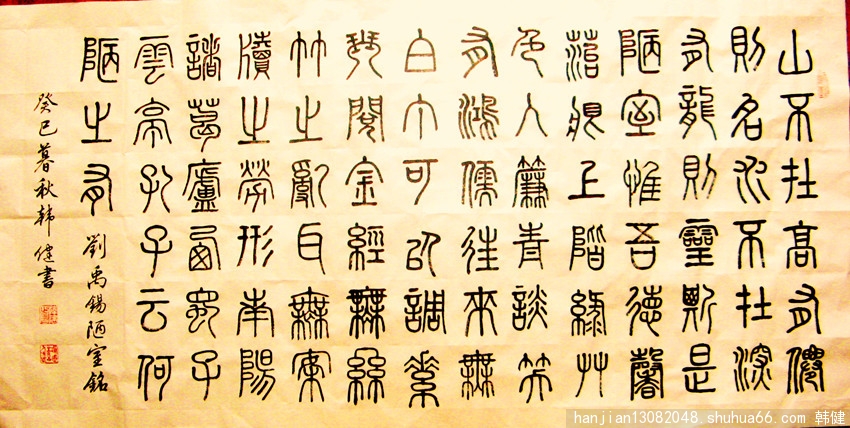 山不在高有僊
則名水不在深
有龍則靈斯是
陋室惟吾德馨
菭痕上階綠艸
色入簾青談笑
有鴻儒往來無
白丁可以調素
琴閱金經無絲
竹之亂耳無案
牘之勞形南陽
諸葛廬西蜀子
雲亭孔子云何
陋之有
劉禹錫陋室銘
癸巳暮秋韩健書
hanjian13082048 shuhua66.com 韩健